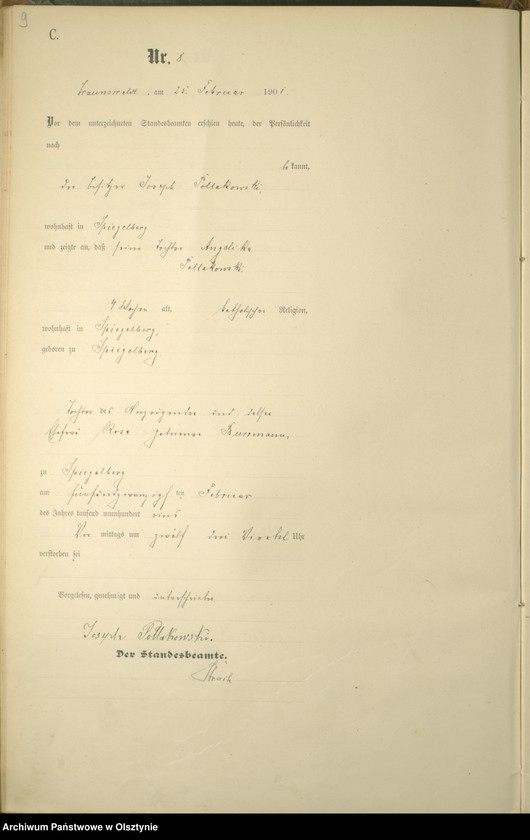 9
C.
Nr. 8.
Braunswalde, am 25. Februar 1901.
Vor dem unterzeichneten Standesbeamten erschien heute, der Persönlichkeit
nach
bekannt,
der Besitzer Joseph
wohnhaft in Spiegelberg
und zeigte an, daß seine Tochter Angelika
4 Wochen alt, katholischer Religion,
wohnhaft in Spiegelberg,
geboren zu Spiegelberg,
Tochter des Anzeigenden und dessen
Ehefrau Rosa geborenen
zu Spiegelberg
am fünfundzwanzigsten Februar
des Jahres tausend neunhundert eins
Vor mittags um zwölf drei Viertel Uhr
verstorben sei
Vorgelesen, genehmigt und unterschrieben
Joseph
Der Standesbeamte.
Archiwum Państwowe w Olsztynie